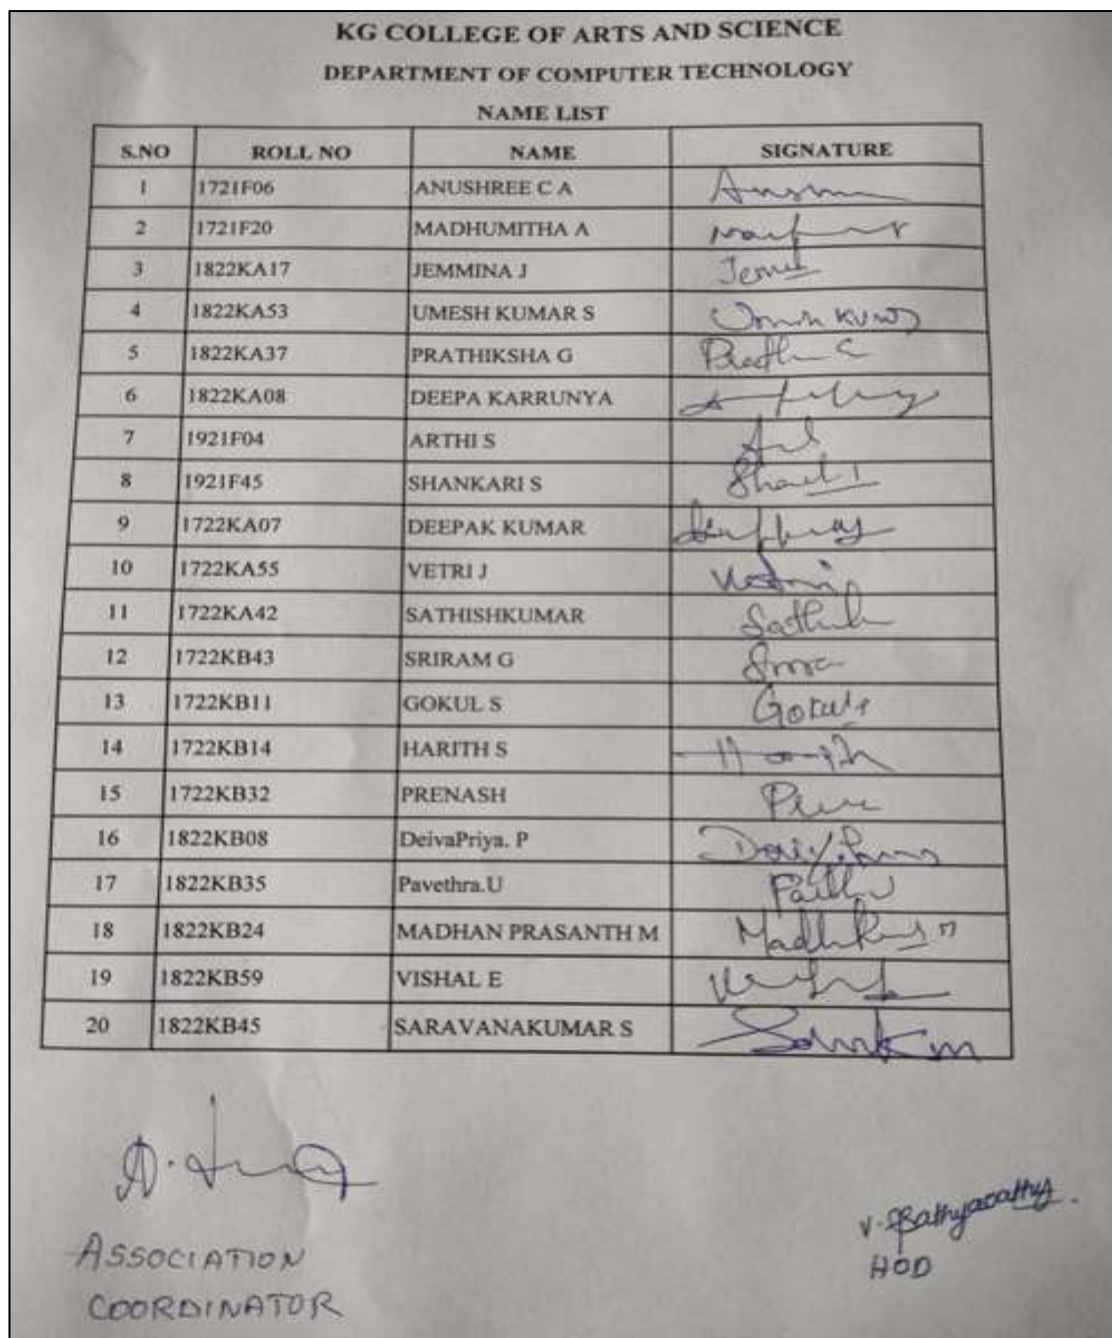 KG COLLEGE OF ARTS AND SCIENCE
DEPARTMENT OF COMPUTER TECHNOLOGY
NAME LIST
S.NO ROLL NO NAME SIGNATURE
1 1721F06 ANUSHREE C A
2 1721F20 MADHUMITHA A
3 1822KA17 JEMMINA J
4 1822KA53 UMESH KUMAR S
5 1822KA37 PRATHIKSHA G
6 1822KA08 DEEPA KARRUNYA
7 1921F04 ARTHI S
8 1921F45 SHANKARI S
9 1722KA07 DEEPAK KUMAR
10 1722KA55 VETRI J
11 1722KA42 SATHISHKUMAR
12 1722KB43 SRIRAM G
13 1722KB11 GOKUL S
14 1722KB14 HARITH S
15 1722KB32 PRENASH
16 1822KB08 DeivaPriya. P
17 1822KB35 Pavethra.U
18 1822KB24 MADHAN PRASANTH M
19 1822KB59 VISHAL E
20 1822KB45 SARAVANAKUMAR S
HOD
ASSOCIATION
COORDINATOR